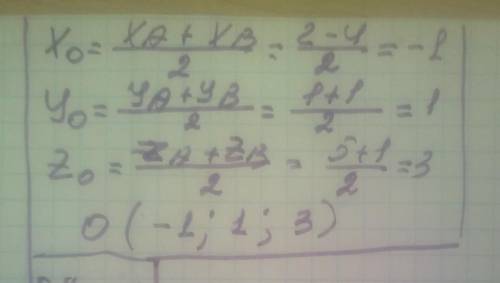 X₀ = (XA + XB)/2 = (2-4)/2 = -1
Y₀ = (YA + YB)/2 = (1+1)/2 = 1
Z₀ = (ZA + ZB)/2 = (5+1)/2 = 3
O (-1; 1; 3)